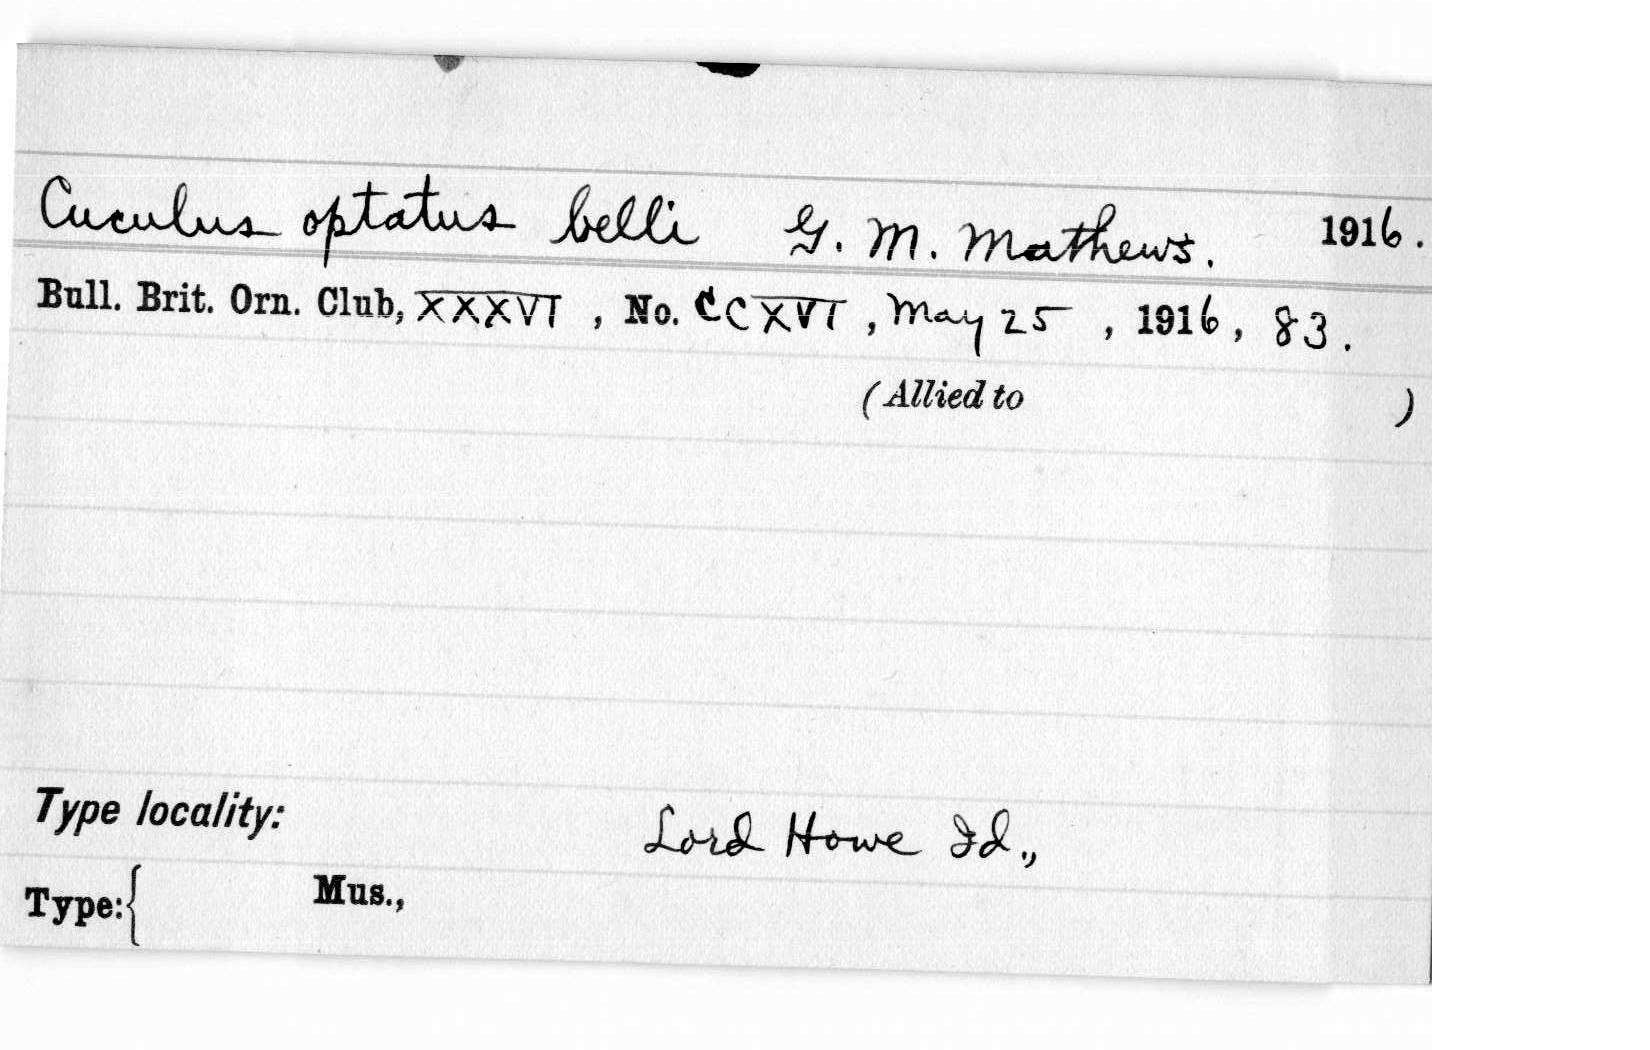 Cuculus optatus belli G. M. Mathews. 1916.
Bull. Brit. Orn. Club, XXXVI, No. CCXVI, May 25, 1916, 83.
(Allied to )
Type locality: Lord Howe Id.,
Type:{ Mus.,